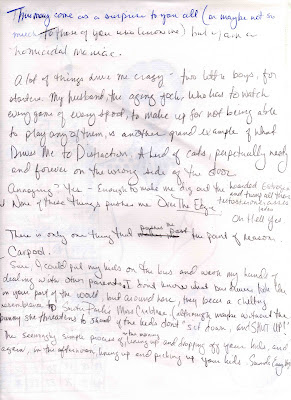 This may come as a surprise to you all (or maybe not so
much to those of you who know me) but I am a
homicidal maniac.
A lot of things drive me crazy - two little boys, for
starters. My husband, the aging jock, who has to watch
every game of every sport, to make up for not being able
to play any of them, is another grand example of what
Drives Me to Distraction. A herd of cats, perpetually needy
and forever on the wrong side of the door.
Annoying - Yes - Enough to make me dig out the hoarded Estrogen
and turn all them
testosterone cases
into
None of these things pushes me Over The Edge.
Oh Hell Yes
There is only one thing that pushes me past the point of reason.
Carpool.
Sure, I could put my kids on the bus and wash my hands of
dealing with other parents. I don't know what bus drivers look like
in your part of the world, but around here, they bear a chilling
resemblance to Miss Crabtree (although maybe without the
gummy she threatens to shoot if the kids don't sit down, and SHUT UP!"
The seemingly simple process of lining up and dropping off your kids, and
again, in the afternoon, lining up and picking up your kids. Sounds easy